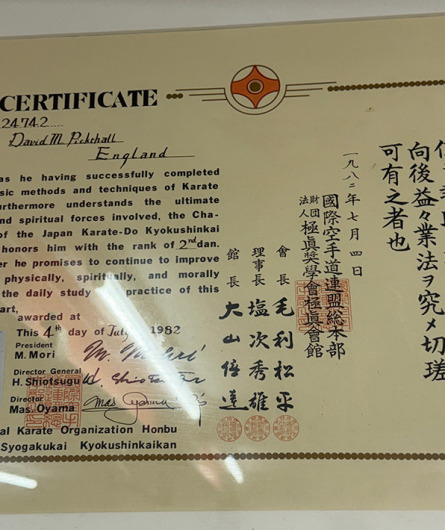 CERTIFICATE
24742
David M. Pickthall
England
as he having successfully completed
sic methods and techniques of Karate
urthermore understands the ultimate
nd spiritual forces involved, the Cha-
of the Japan Karate-Do Kyokushinkai
honors him with the rank of 2nd dan.
er he promises to continue to improve
physically, spiritually, and morally
the daily study practice of this
art,
awarded at
This 4th day of July 1982
President
M. Mori
Director General
H. Shiotsugu
Director
Mas. Oyama
Mas Oyama
al Karate Organization Honbu
Syogakukai Kyokushinkaikan
向後益々業法ヲ究メ切瑳
可有之者也
一九八二年七月四日
國際空手道連盟総本部
財団法人 極真奨学會極真會館
会長 毛利松平
理事長 塩次秀雄
館長 大山倍達